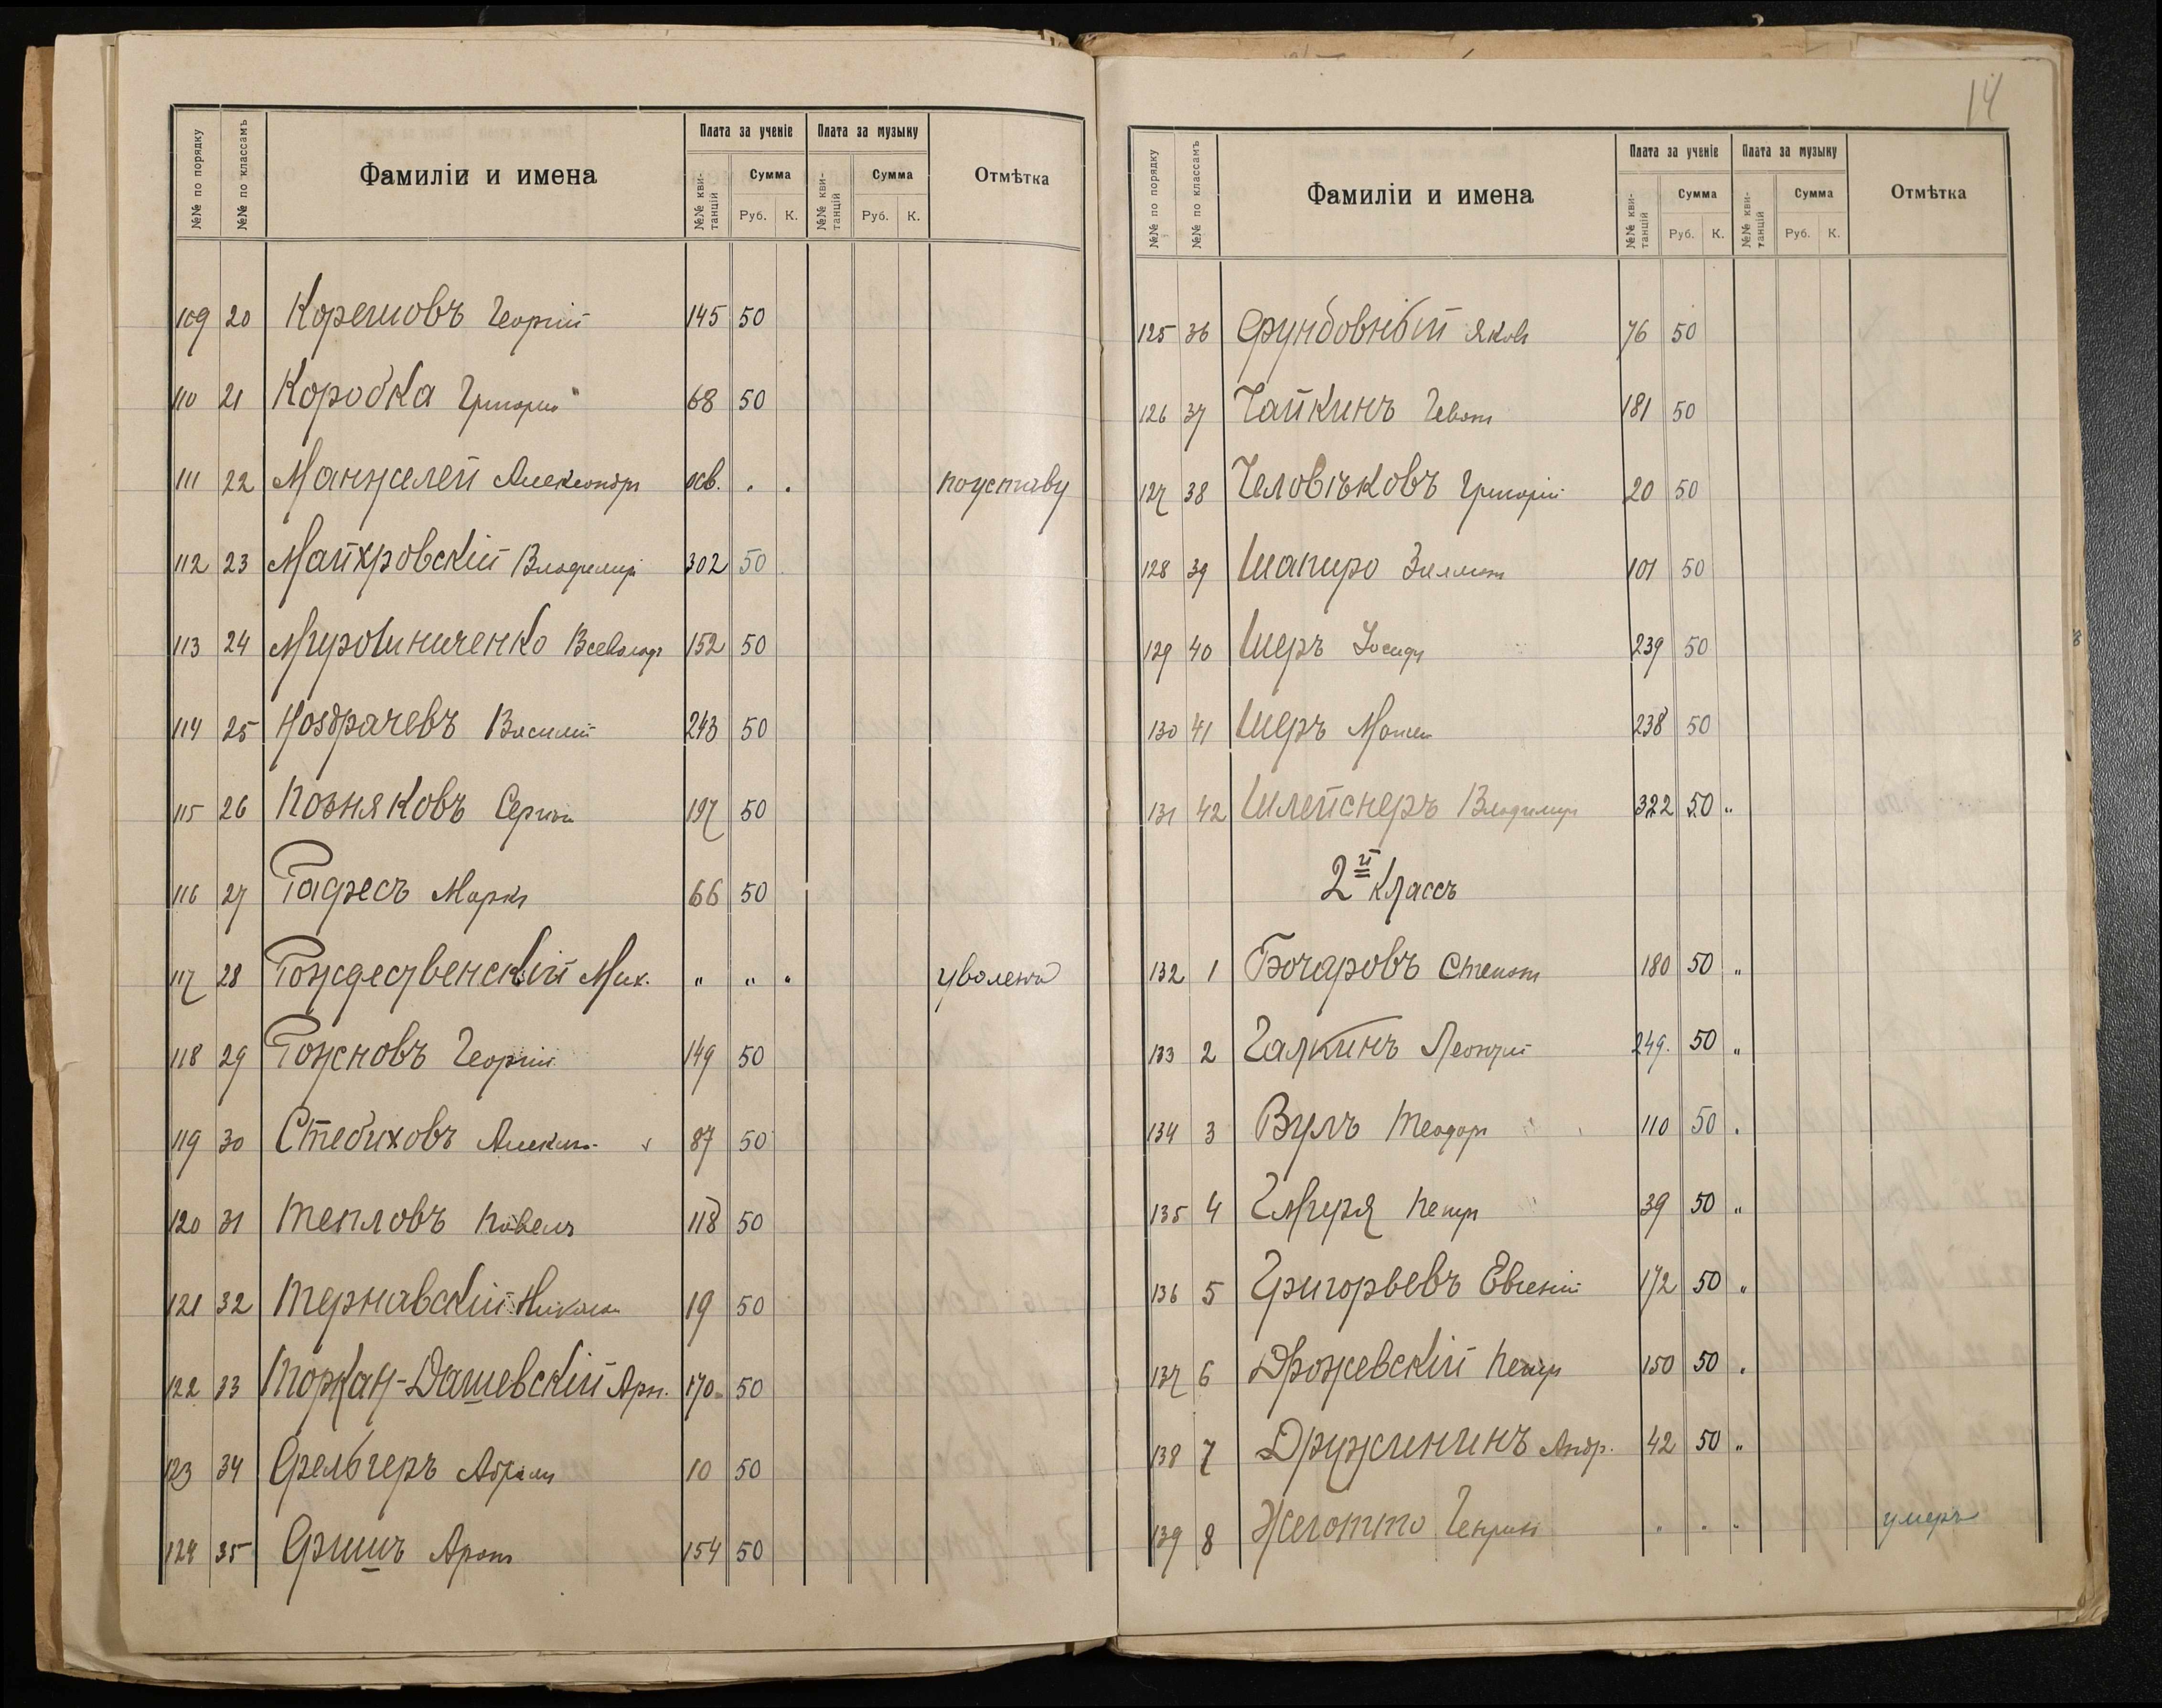 №№ по порядку
№№ по классамъ
Фамиліи и имена
Плата за ученіе
Плата за музыку
Отмѣтка
№№ квитанцій
Сумма
№№ квитанцій
Сумма
Руб. К.
Руб. К.
109 20 Корешовъ Георгій 145 50
110 21 Коробка Григорій 68 50
111 22 Манжелей Александръ осв. . . по уставу
112 23 Майхровскій Владиміръ 302 50
113 24 Мирошниченко Всеволодъ 152 50
114 25 Ноздрачевъ Василій 243 50
115 26 Позняковъ Сергѣй 197 50
116 27 Рафесъ Маркъ 66 50
117 28 Рождественскій Мих. " " " уволенъ
118 29 Рожновъ Георгій 149 50
119 30 Стебиховъ Алекс. 87 50
120 31 Тепловъ Павелъ 118 50
121 32 Тернавскій Николай 19 50
122 33 Торкан-Дашевскій Арк. 170 50
123 34 Фрельгеръ Абрамъ 10 50
124 35 Фришъ Аронъ 154 50
14
№№ по порядку
№№ по классамъ
Фамиліи и имена
Плата за ученіе
Плата за музыку
Отмѣтка
№№ квитанцій
Сумма
№№ квитанцій
Сумма
Руб. К.
Руб. К.
125 36 Фрундовный Яковъ 76 50
126 37 Чайкинъ 181 50
127 38 Человѣковъ Григорій 20 50
128 39 Шапиро 101 50
129 40 Шеръ Іосифъ 239 50
130 41 Шеръ Моисей 238 50
131 42 Шлейснеръ Владиміръ 322 50 "
2й классъ
132 1 Бочаровъ Степанъ 180 50 "
133 2 Галкинъ Леонтій 249. 50 "
134 3 Вулъ Теодоръ 110 50 .
135 4 Гмыря Петръ 39 50 "
136 5 Григорьевъ Евгеній 172 50 "
137 6 Дрожевскій Петръ 150 50 .
138 7 Дружининъ Андр. 42 50 "
139 8 Жеготто Генрихъ " " " умеръ